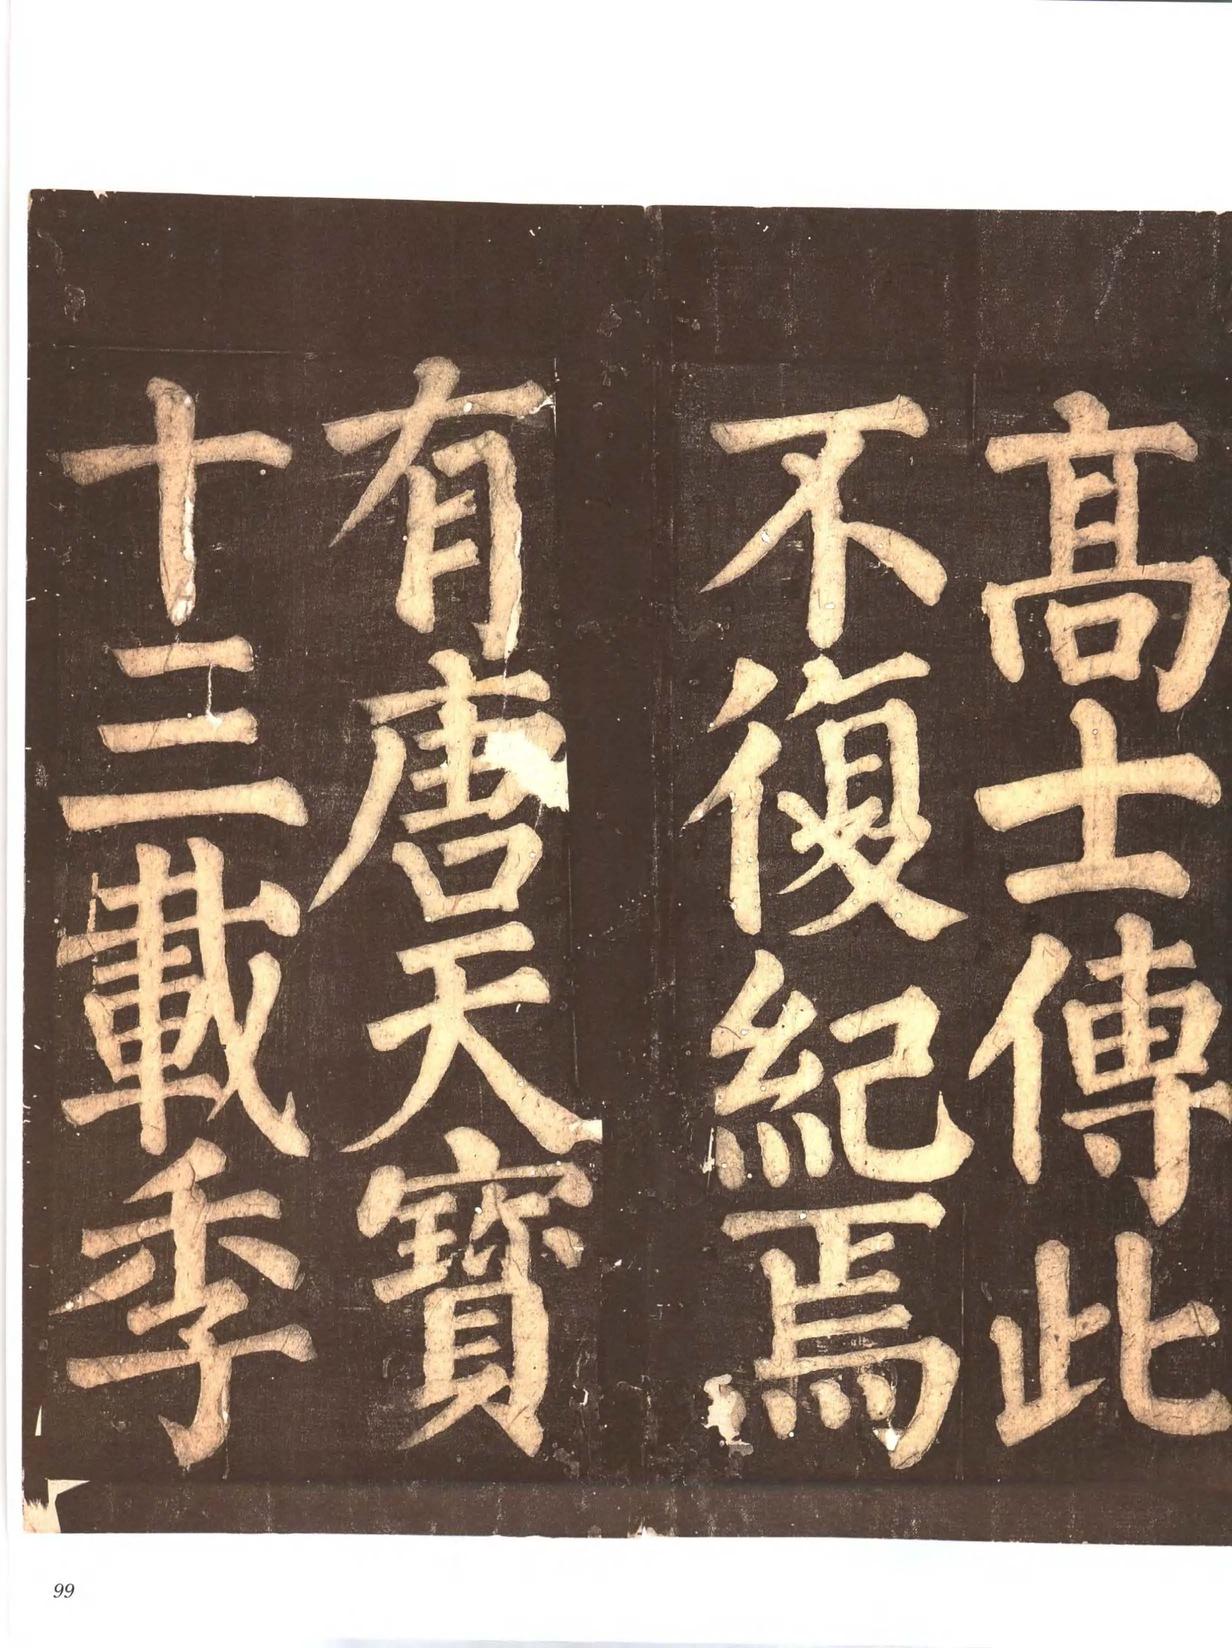 高士傳此
不復紀焉
有唐天寶
十三載季
99